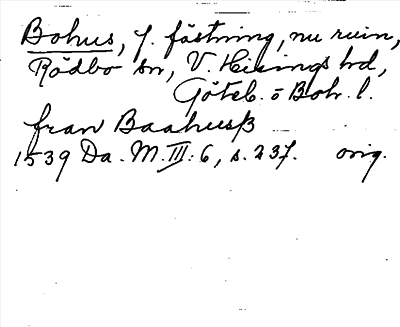 Bohus, f. fästning, nu ruin,
Rödbo sn, V. Hisings hd,
Göteb. o Boh. l.
fran Baahusß
1539 Da. M. III: 6, s. 237. orig.